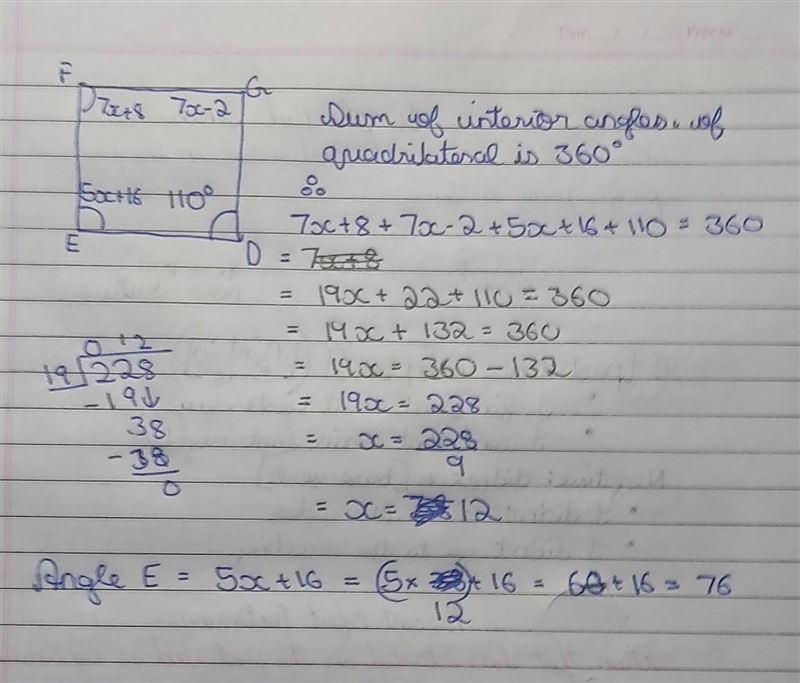 Date / / Page no
F G
7x+8 7x-2
Sum of interior angles of
quadrilateral is 360°
5x+16 110°
∴
E D
7x+8+7x-2+5x+16+110=360
= 7x+8
= 19x+22+110=360
= 19x+132=360
= 19x=360-132
= 19x=228
= x=228/9
= x=12
012
19)228
-19↓
38
-38
0
Angle E = 5x+16 = (5x )+16 = 60+16 = 76
12